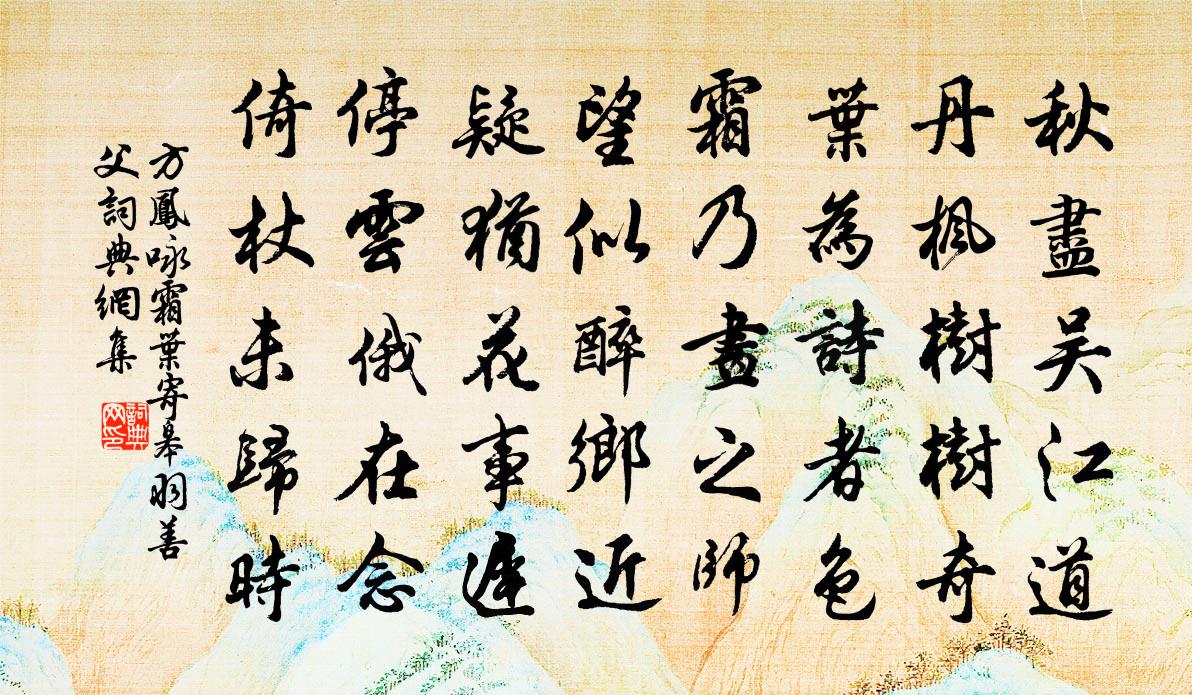 秋盡吴江道
丹楓樹樹奇
葉為詩者色
霜乃畫之師
望似醉鄉近
疑猶花事遲
停雲俄在念
倚杖未歸時
方鳳咏霜葉寄皋羽善
父詞典網集
詞典网印